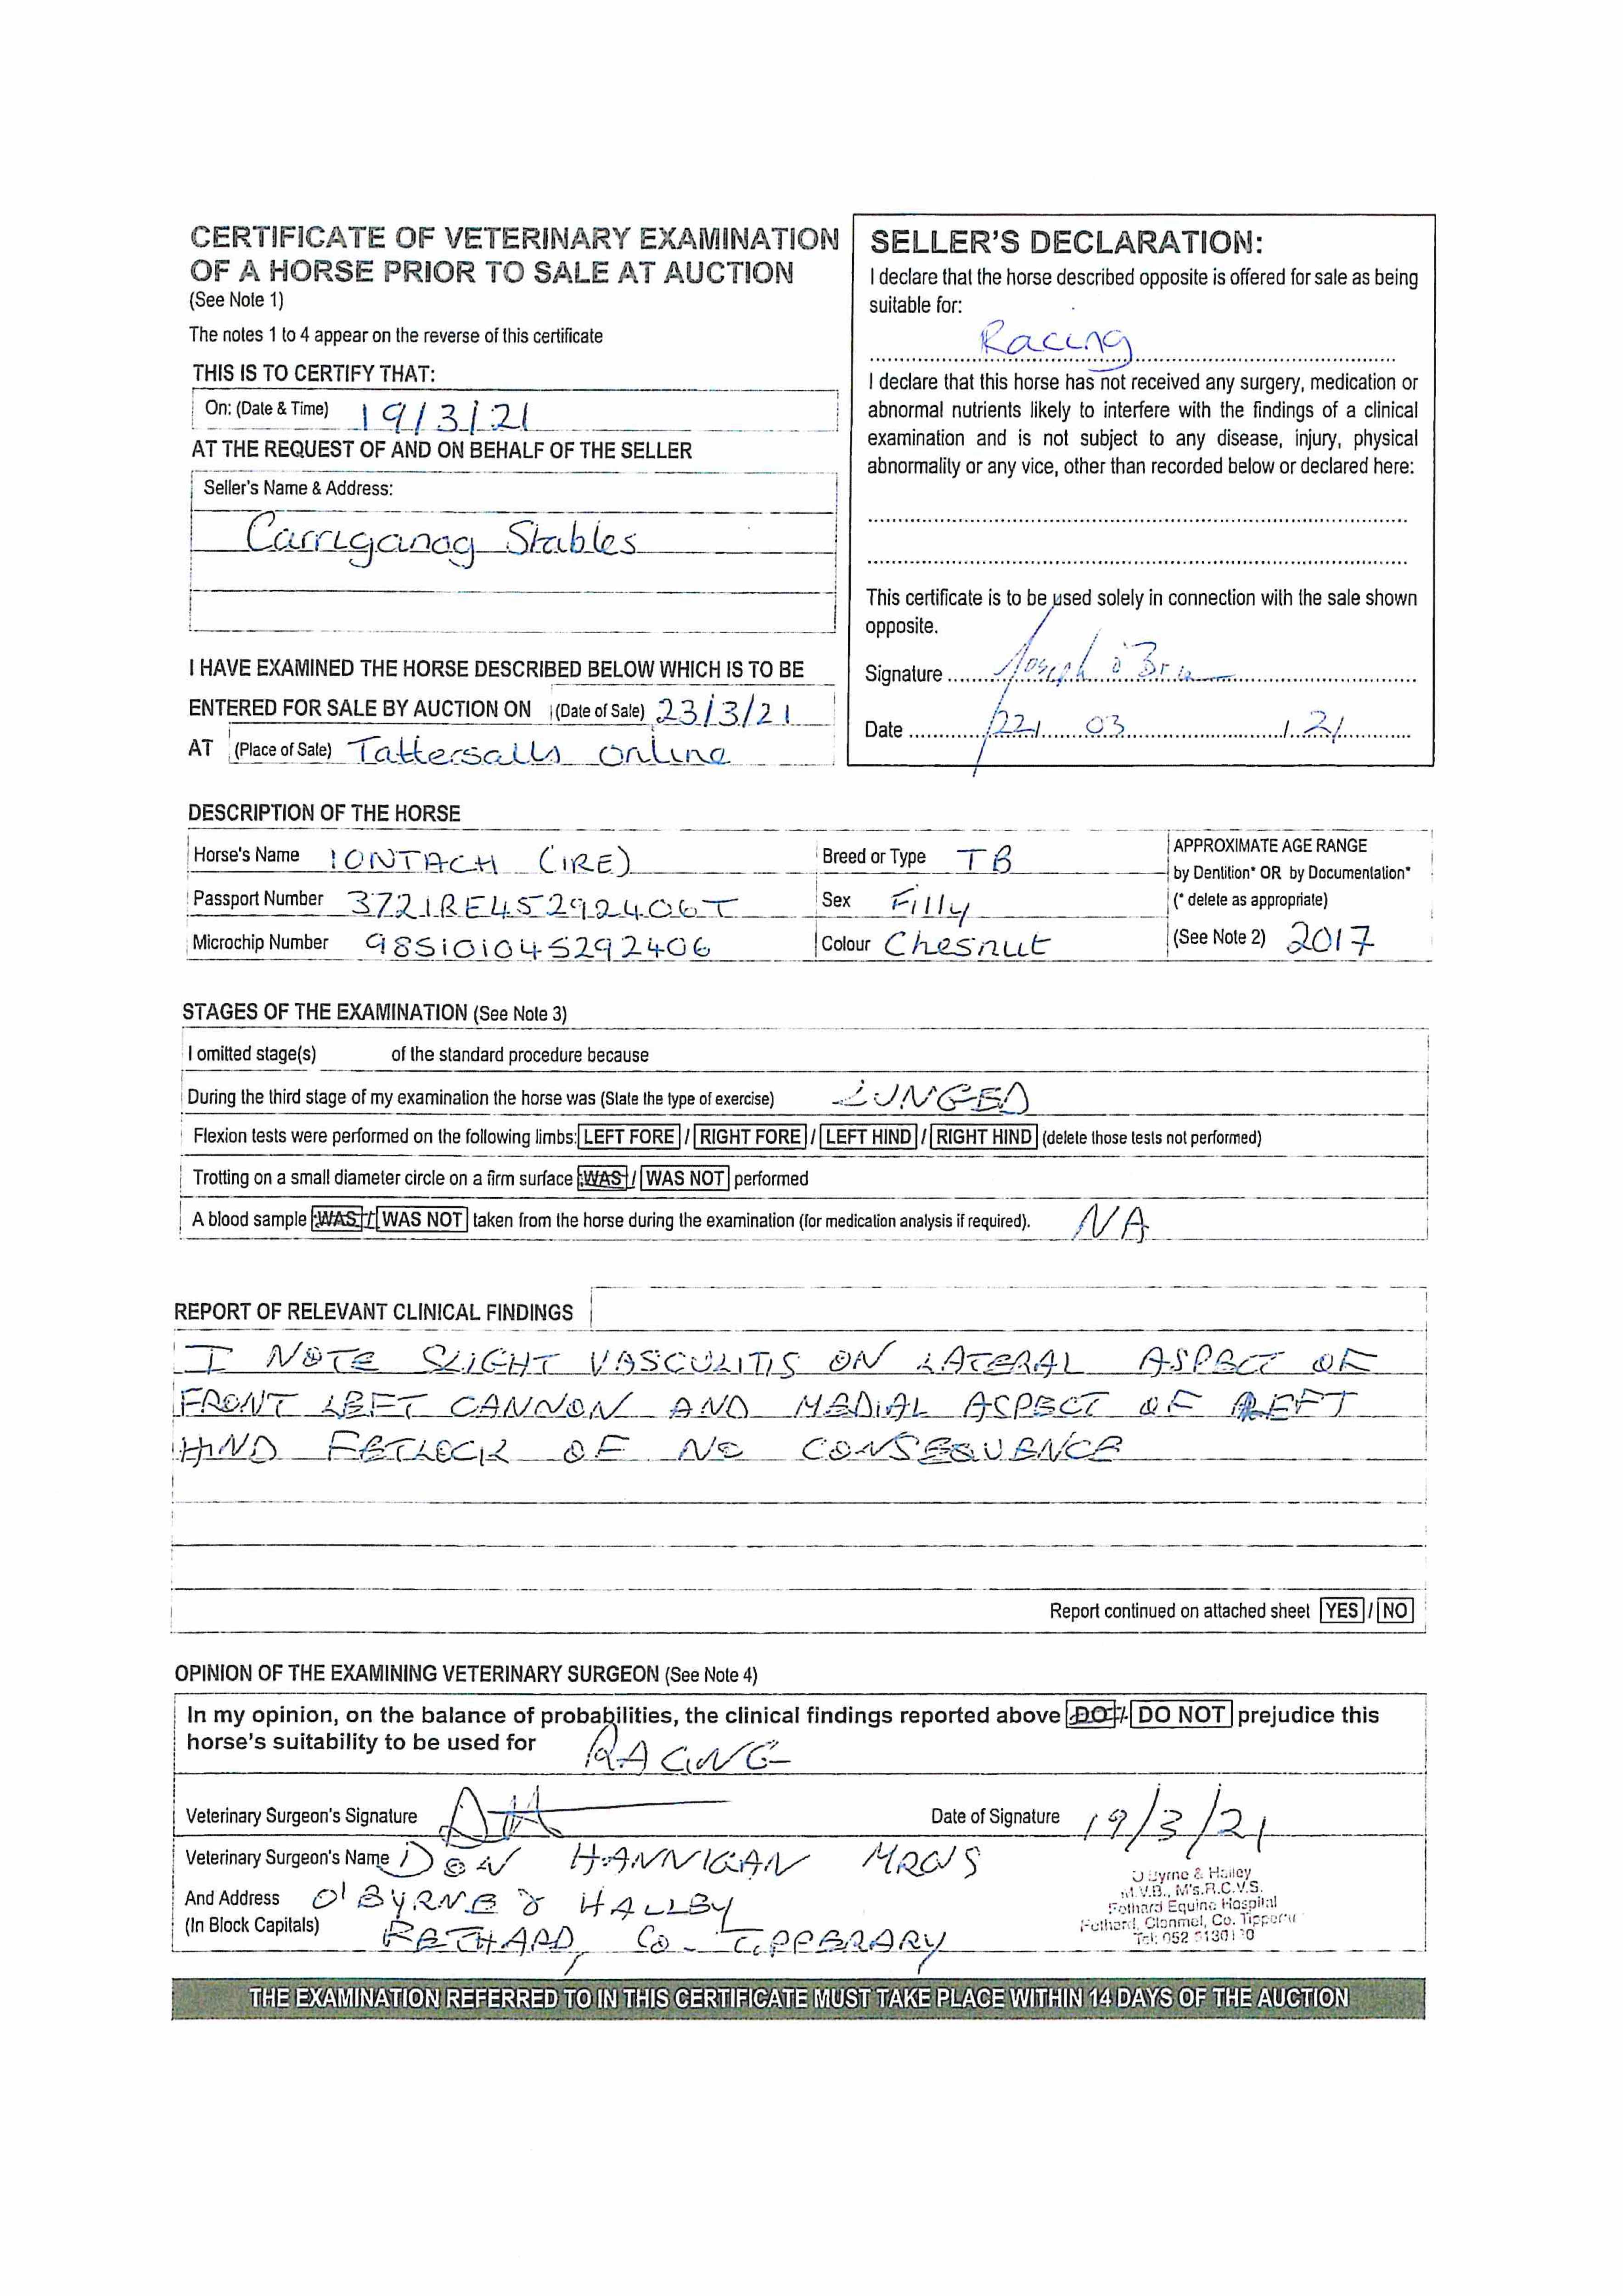 CERTIFICATE OF VETERINARY EXAMINATION
OF A HORSE PRIOR TO SALE AT AUCTION
(See Note 1)
The notes 1 to 4 appear on the reverse of this certificate
THIS IS TO CERTIFY THAT:
On: (Date & Time) 19/3/21
AT THE REQUEST OF AND ON BEHALF OF THE SELLER
Seller's Name & Address:
Carriganog Stables
I HAVE EXAMINED THE HORSE DESCRIBED BELOW WHICH IS TO BE
ENTERED FOR SALE BY AUCTION ON (Date of Sale) 23/3/21
AT (Place of Sale) Tattersalls online
SELLER'S DECLARATION:
I declare that the horse described opposite is offered for sale as being
suitable for:
Racing
I declare that this horse has not received any surgery, medication or
abnormal nutrients likely to interfere with the findings of a clinical
examination and is not subject to any disease, injury, physical
abnormality or any vice, other than recorded below or declared here:
This certificate is to be used solely in connection with the sale shown
opposite.
Signature Joseph o'Brien
Date 22/ 03 /21
DESCRIPTION OF THE HORSE
Horse's Name IONTACH (IRE) Breed or Type TB
APPROXIMATE AGE RANGE
by Dentition* OR by Documentation*
Passport Number 372IRE45292406T Sex Filly (* delete as appropriate)
Microchip Number 985101045292406 Colour Chesnut (See Note 2) 2017
STAGES OF THE EXAMINATION (See Note 3)
I omitted stage(s) of the standard procedure because
During the third stage of my examination the horse was (State the type of exercise) LUNGED
Flexion tests were performed on the following limbs: LEFT FORE / RIGHT FORE / LEFT HIND / RIGHT HIND (delete those tests not performed)
Trotting on a small diameter circle on a firm surface WAS / WAS NOT performed
A blood sample WAS / WAS NOT taken from the horse during the examination (for medication analysis if required). NA
REPORT OF RELEVANT CLINICAL FINDINGS
I NOTE SLIGHT VASCULITIS ON LATERAL ASPECT OF
FRONT LEFT CANNON AND MEDIAL ASPECT OF LEFT
HIND FETLOCK OF NO CONSEQUENCE
Report continued on attached sheet YES / NO
OPINION OF THE EXAMINING VETERINARY SURGEON (See Note 4)
In my opinion, on the balance of probabilities, the clinical findings reported above DO / DO NOT prejudice this
horse's suitability to be used for RACING
Veterinary Surgeon's Signature Date of Signature 19/3/21
Veterinary Surgeon's Name DON HANNIGAN MRCVS
And Address O'BYRNE & HALLEY
(In Block Capitals) FETHARD, CO. TIPPERARY
O'Byrne & Halley
M.V.B., M's.R.C.V.S.
Fethard Equine Hospital
Fethard, Clonmel, Co. Tipperary
Tel: 052
THE EXAMINATION REFERRED TO IN THIS CERTIFICATE MUST TAKE PLACE WITHIN 14 DAYS OF THE AUCTION